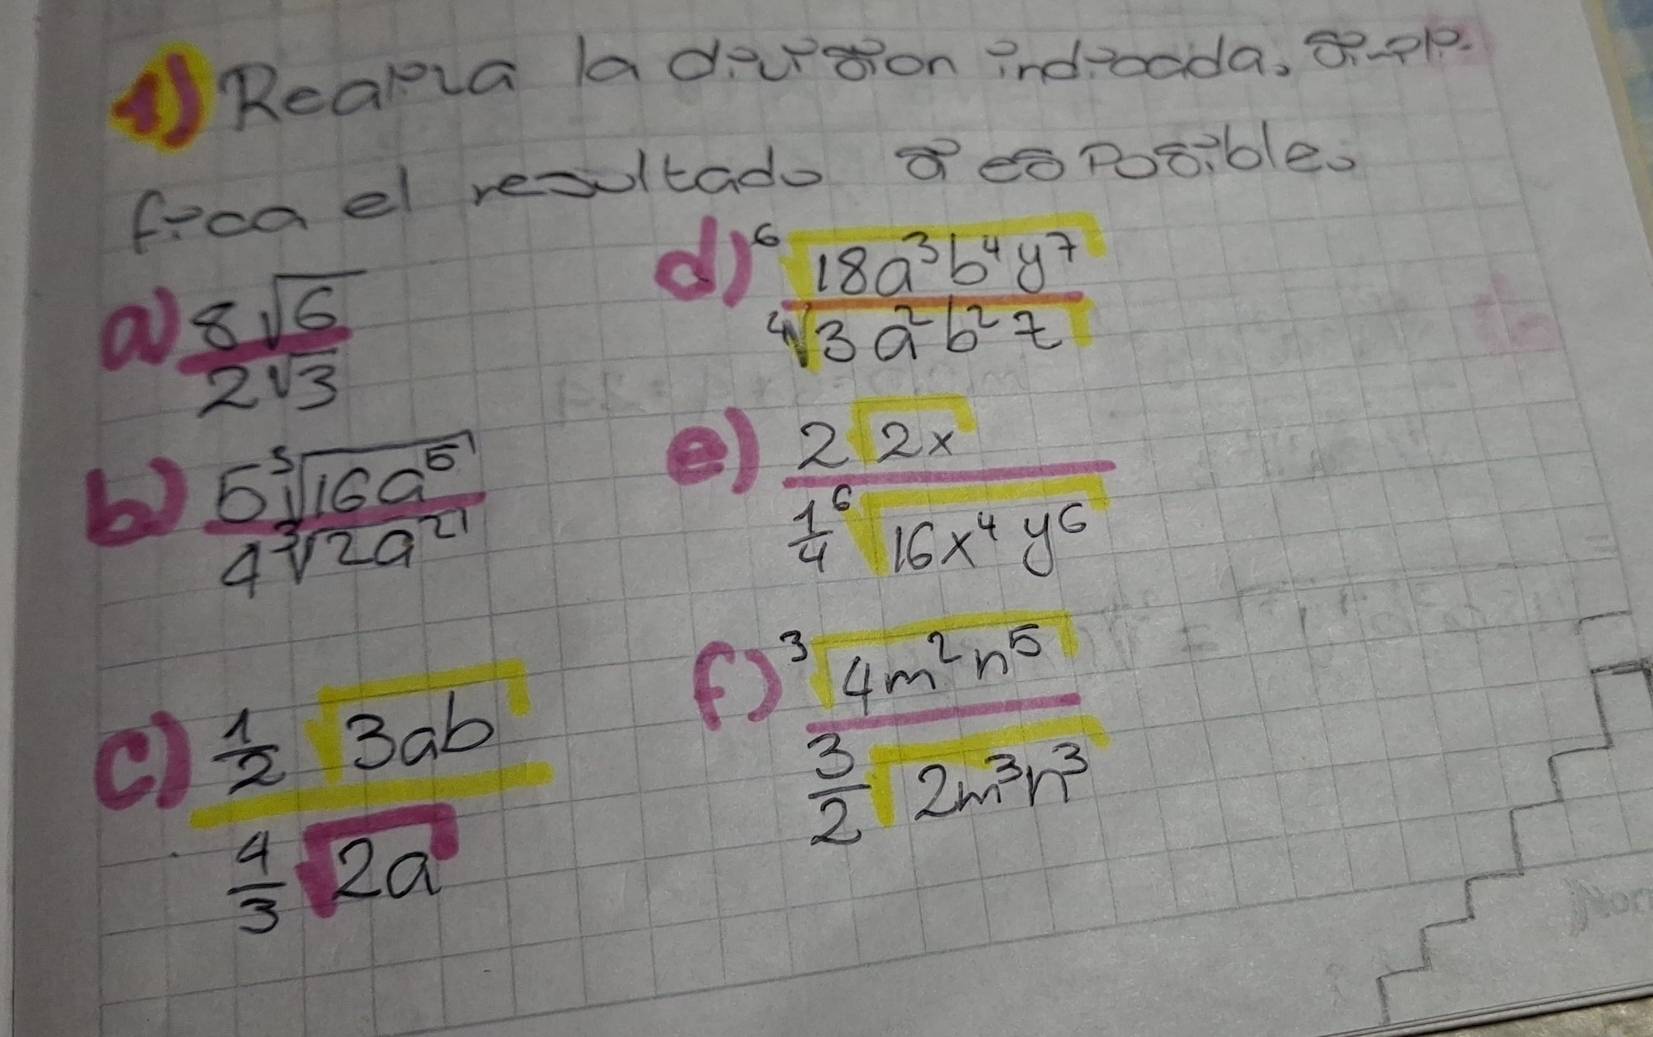 1) Realiza la división indicada, simpli-
fica el resultado si es posible.
a) 8√6 / 2√3
b) 5 ³√16a⁵ / 4 ³√2a²
c) 1/2 √3ab / 4/3 √2a
d) ⁶√18a³b⁴y⁷ / ⁴√3a²b²z
e) 2√2x / 1/4 ⁶√16x⁴y⁶
f) ³√4m²n⁵ / 3/2 √2m³n³
Nor